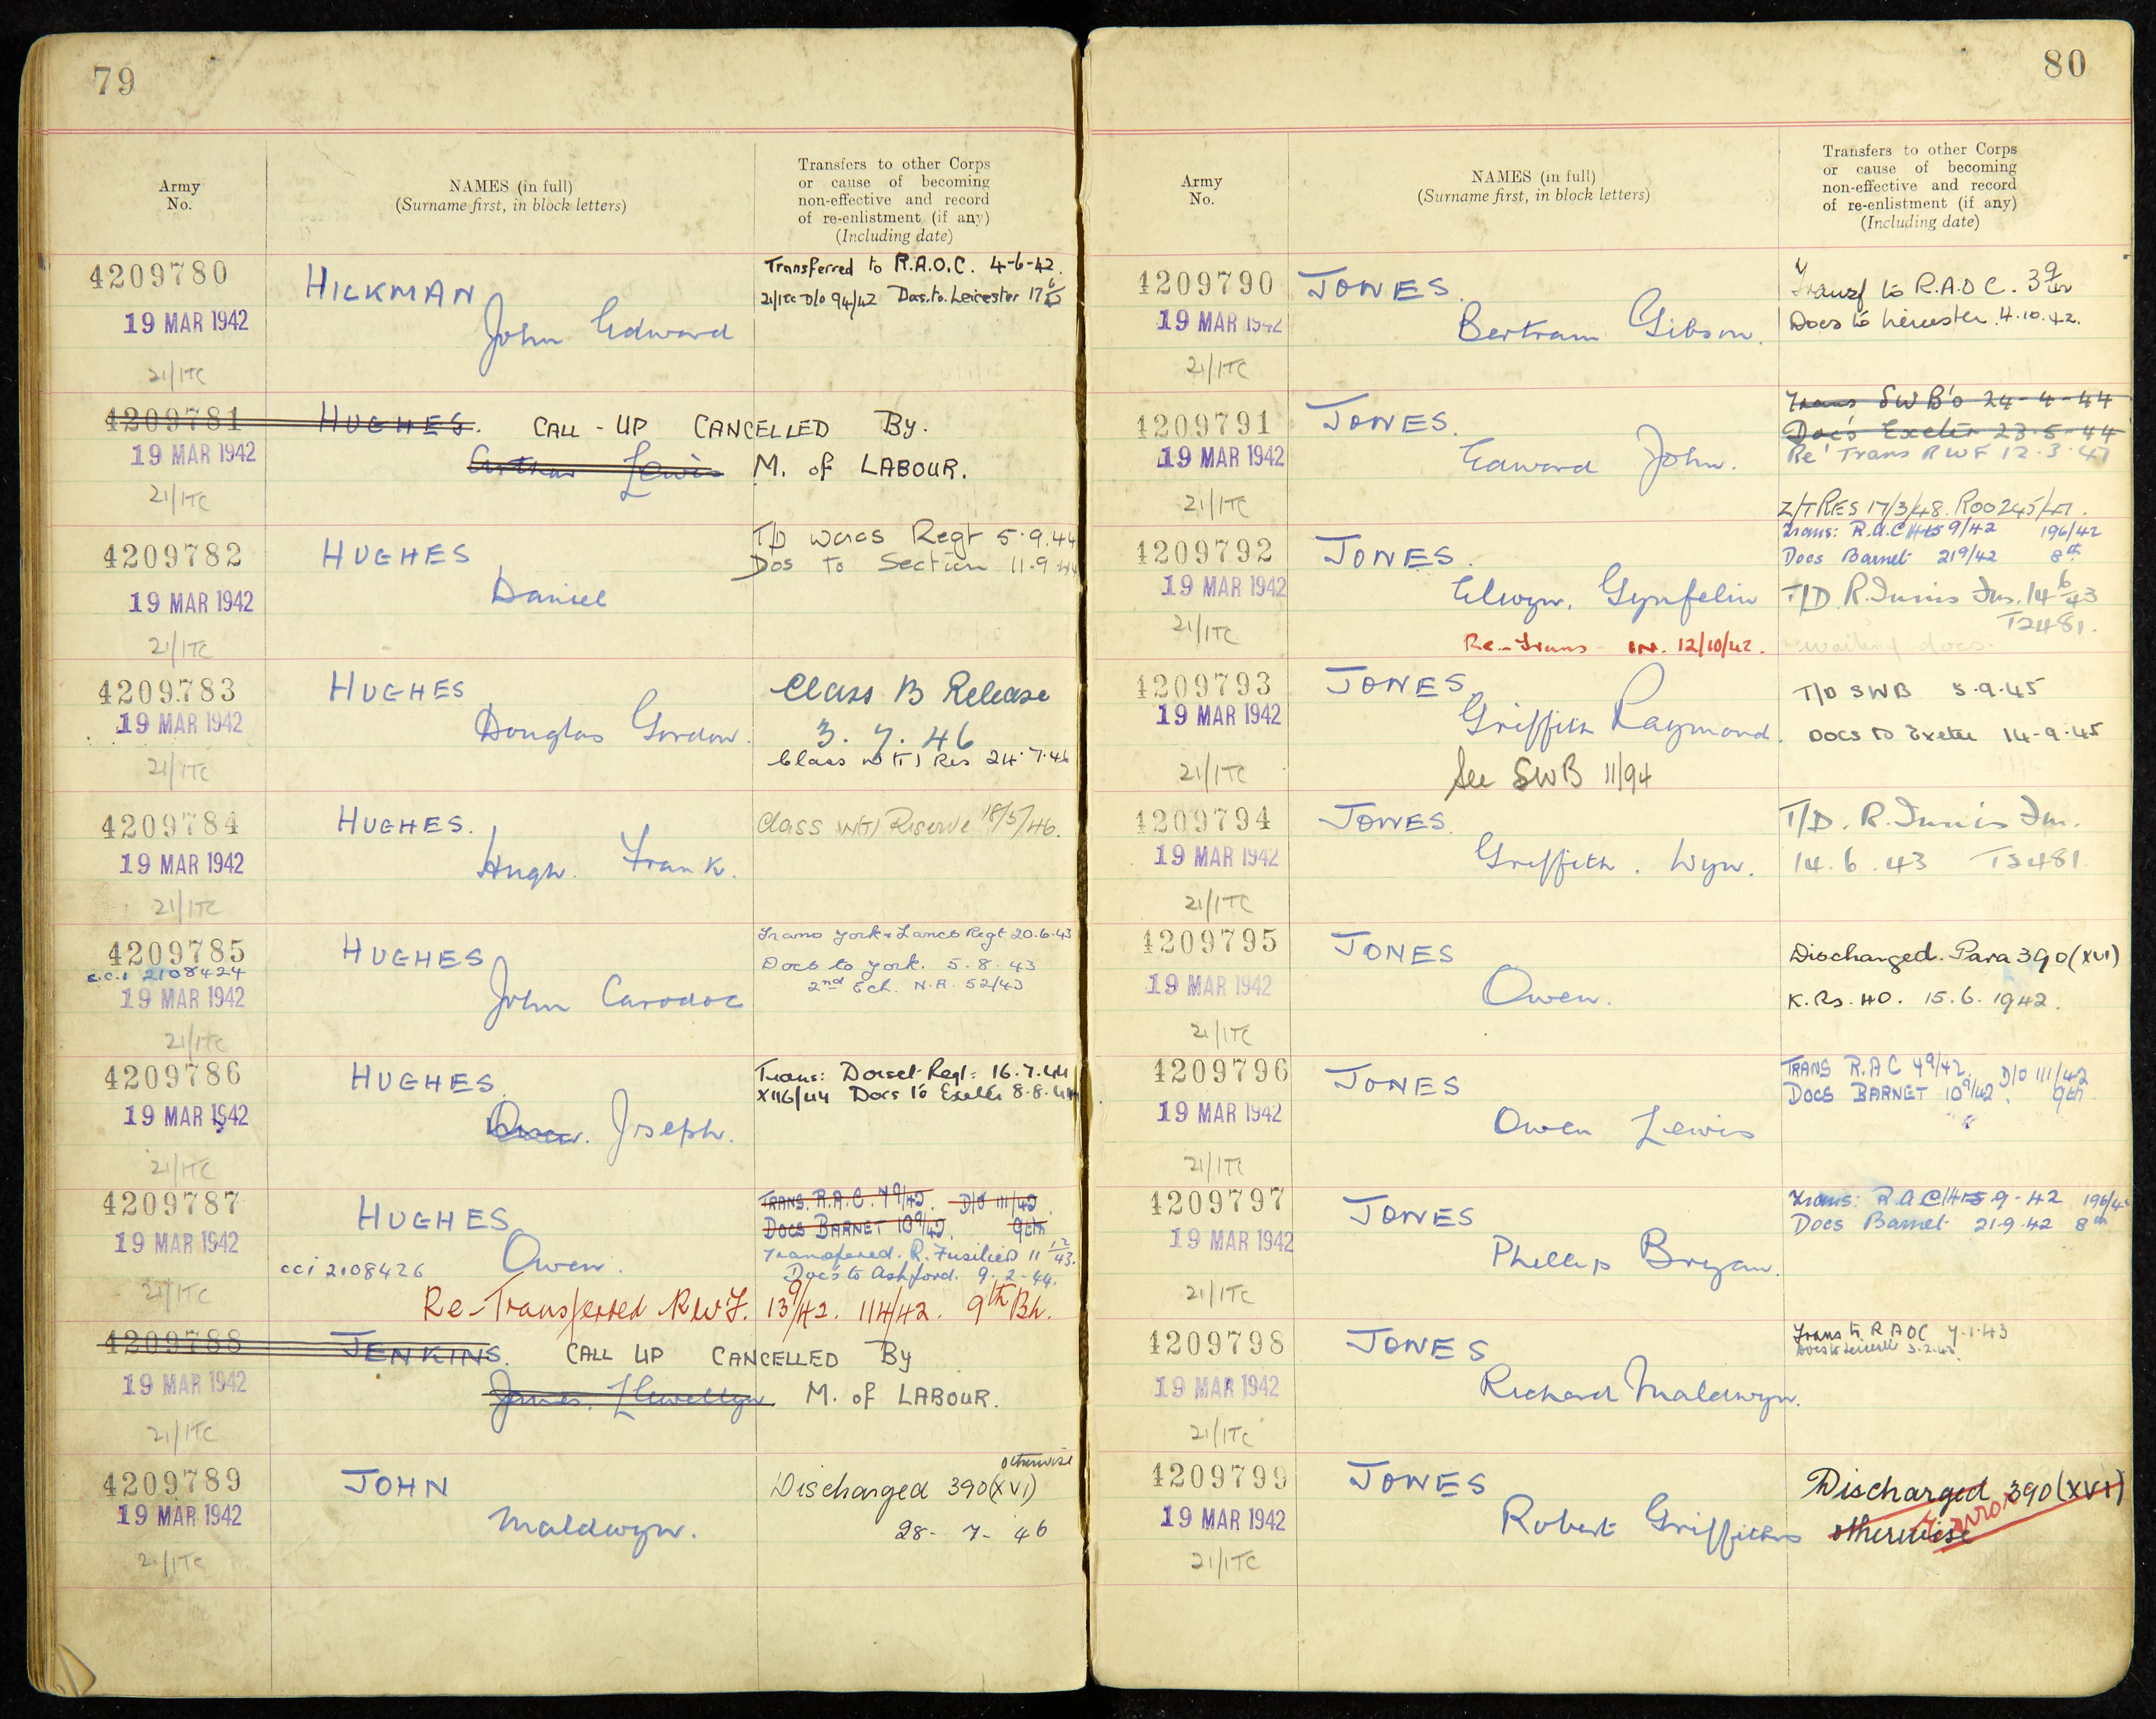 79
Army
No.
NAMES (in full)
(Surname first, in block letters)
Transfers to other Corps
or cause of becoming
non-effective and record
of re-enlistment (if any)
(Including date)
4209780
19 MAR 1942
21/ITC
HICKMAN
John Edward
Transferred to R.A.O.C. 4-6-42.
21/ITC D/O 94/42 Docs.to.Leicester 17
4209781
19 MAR 1942
21/ITC
HUGHES. CALL-UP CANCELLED BY.
Arthur Lewis M. of LABOUR.
4209782
19 MAR 1942
21/ITC
HUGHES
Daniel
T/D Worcs Regt 5.9.44
Dos To Section 11.9.44
4209783
19 MAR 1942
21/ITC
HUGHES
Douglas Gordon.
Class B Release
3. 7. 46
Class W(T) Res 24.7.46
4209784
19 MAR 1942
21/ITC
HUGHES.
Hugh. Frank.
Class W(T) Reserve 18/5/46.
4209785
c.c.1 2108424
19 MAR 1942
21/ITC
HUGHES
John Carodoc
Trans York & Lancs Regt 20.6.43
Docs to York. 5.8.43
2nd Ech. N.A. 52/43
4209786
19 MAR 1942
21/ITC
HUGHES.
Owen. Joseph.
Trans: Dorset Regt: 16.7.44
X116/44 Docs to Exeter 8.8.44
4209787
19 MAR 1942
21/ITC
HUGHES
cci 2108426 Owen.
TRANS. R.A.C. 4 9/42. D/O 111/42.
DOCS BARNET 10 9/42. 9th
Transfered. R. Fusiliers 11 12/43.
Docs to Ashford. 9-2-44.
Re-Transferred R.W.F. 13 9/42. 114/42. 9th Bn.
4209788
19 MAR 1942
21/ITC
JENKINS. CALL UP CANCELLED By
James. Llewellyn M. of LABOUR.
4209789
19 MAR 1942
21/ITC
JOHN
Maldwyn.
otherwise
Discharged 390(XVI)
28- 7- 46
80
Army
No.
NAMES (in full)
(Surname first, in block letters)
Transfers to other Corps
or cause of becoming
non-effective and record
of re-enlistment (if any)
(Including date)
4209790
19 MAR 1942
21/ITC
JONES.
Bertram Gibson.
Transf to R.A.O.C. 3 9/42
Docs to Leicester. 4.10.42.
4209791
19 MAR 1942
21/ITC
JONES.
Edward John.
Trans SWB's 24-4-44
Docs Exeter 23-5-44
Re' Trans RWF 12.3.47
Z/T RES 17/3/48. R00245/47.
4209792
19 MAR 1942
21/ITC
JONES.
Elwyn. Gynfelin
Re-Trans - IN. 12/10/42.
Trans: R.A.C. 9/42 196/42
Docs Barnet 21 9/42 8th
T/D R.Innis Fus. 14 6/43
T2481.
waiting docs.
4209793
19 MAR 1942
21/ITC
JONES
Griffith Raymond.
See SWB 11/94
T/D SWB 5.9.45
DOCS to Exeter 14-9-45
4209794
19 MAR 1942
21/ITC
JONES.
Griffith. Wyn.
T/D. R. Innis Fus.
14.6.43 T2481
4209795
19 MAR 1942
21/ITC
JONES
Owen.
Discharged. Para 390(XVI)
K.Rs. 40. 15.6.1942.
4209796
19 MAR 1942
21/ITC
JONES
Owen Lewis
TRANS R.A.C 4 9/42. D/O 111/42
DOCS BARNET 10 9/42. 9th.
4209797
19 MAR 1942
21/ITC
JONES
Phillip Bryan.
Trans: R.A.C 9-42 196/42
Docs Barnet 21.9.42 8th
4209798
19 MAR 1942
21/ITC
JONES
Richard Maldwyn.
Trans to R A O C 7.1.43
4209799
19 MAR 1942
21/ITC
JONES
Robert Griffiths
Discharged 390(XVI)
otherwise
Error